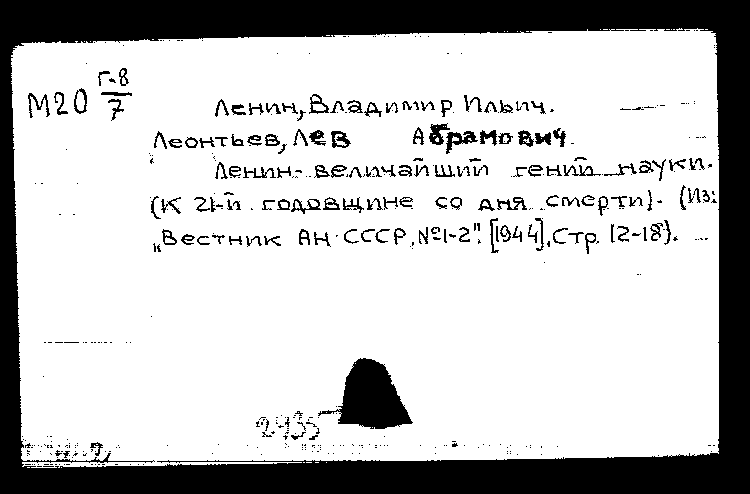 М20 Г-8/7
Ленин, Владимир Ильич.
Леонтьев, Лев Абрамович.
Ленин- величайший гений науки.
(К 21-й годовщине со дня смерти). (Из:
"Вестник АН СССР, №1-2". [1944], Стр. 12-18).
2435
2